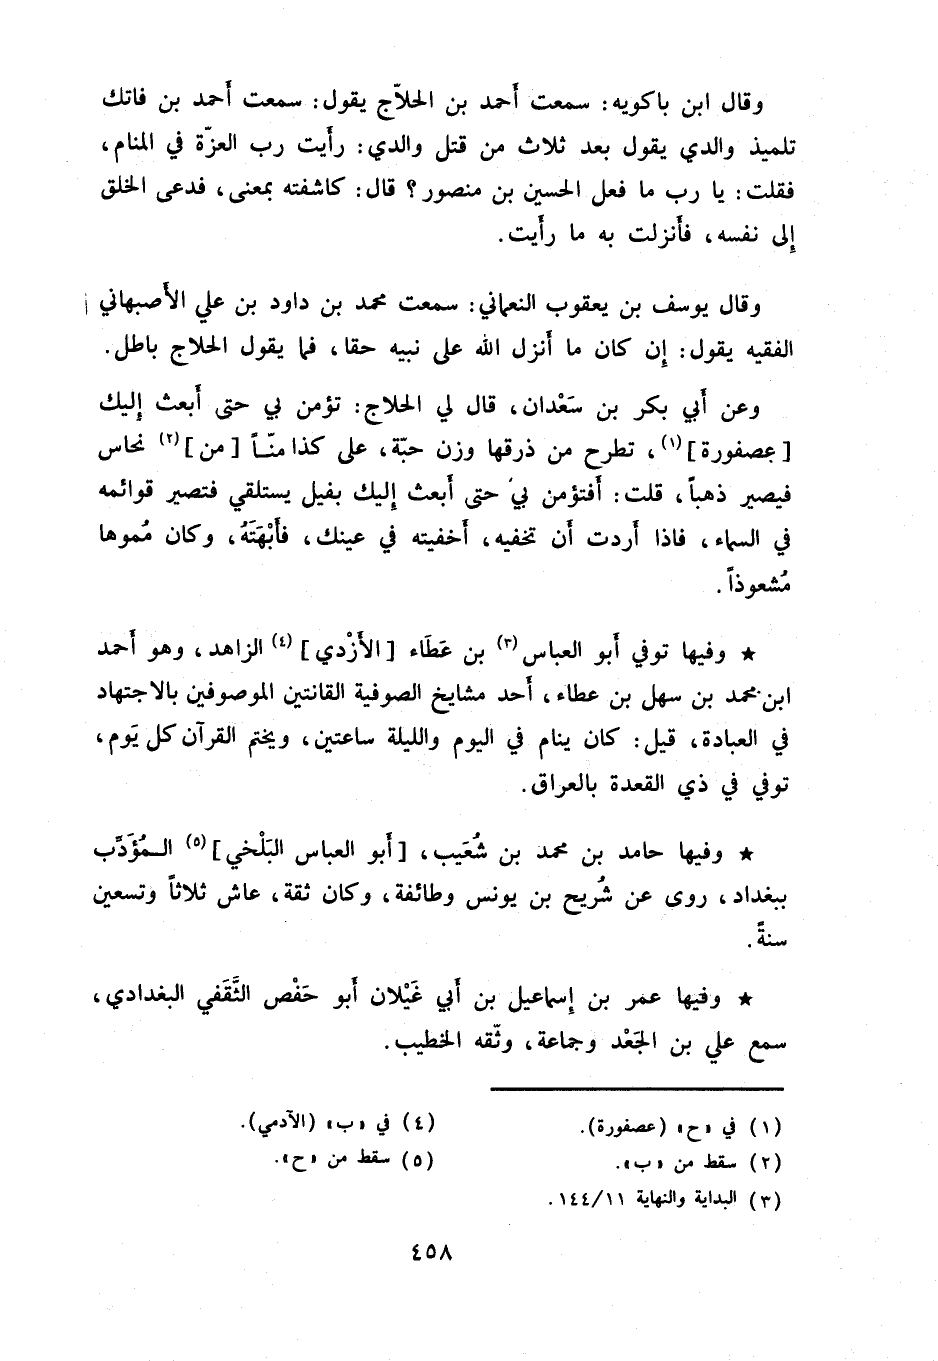 وقال ابن باكويه: سمعت أَحمد بن الحلاّج يقول: سمعت أَحمد بن فاتك
تلميذ والدي يقول بعد ثلاث من قتل والدي: رأَيت رب العزّة في المنام،
فقلت: يا رب ما فعل الحسين بن منصور؟ قال: كاشفته بمعنى، فدعى الخلق
إِلى نفسه، فأَنزلت به ما رأَيت.
وقال يوسف بن يعقوب النعماني: سمعت محمد بن داود بن علي الأَصبهاني
الفقيه يقول: إِن كان ما أَنزل الله على نبيه حقا، فما يقول الحلاج باطل.
وعن أَبي بكر بن سَعْدان، قال لي الحلاج: تؤمن بي حتى أَبعث إِليك
[عصفورة] (١)، تطرح من ذرقها وزن حبّة، على كذا منّـاً [من] (٢) نحاس
فيصير ذهباً، قلت: أَفتؤمن بي حتى أَبعث إِليك بفيل يستلقي فتصير قوائمه
في السماء، فاذا أَردت أَن تخفيه، أَخفيته في عينك، فأَبْهَتَهُ، وكان مُموها
مُشعوذاً.
★ وفيها توفي أَبو العباس (٣) بن عَطَاء [الأَزْدي] (٤) الزاهد، وهو أَحمد
ابن محمد بن سهل بن عطاء، أَحد مشايخ الصوفية القانتين الموصوفين بالاجتهاد
في العبادة، قيل: كان ينام في اليوم والليلة ساعتين، ويختم القرآن كل يَوم،
توفي في ذي القعدة بالعراق.
★ وفيها حامد بن محمد بن شُعَيب، [أَبو العباس البَلْخي] (٥) الـمُؤَدِّب
ببغداد، روى عن شُريح بن يونس وطائفة، وكان ثقة، عاش ثلاثاً وتسعين
سنةً.
★ وفيها عمر بن إِسماعيل بن أَبي غَيْلان أَبو حَفْص الثَّقَفي البغدادي،
سمع علي بن الجَعْد وجماعة، وثّقه الخطيب.
(١) في «ح» (عصفورة).
(٢) سقط من «ب».
(٣) البداية والنهاية ١٤٤/١١.
(٤) في «ب» (الآدمي).
(٥) سقط من «ح».
٤٥٨